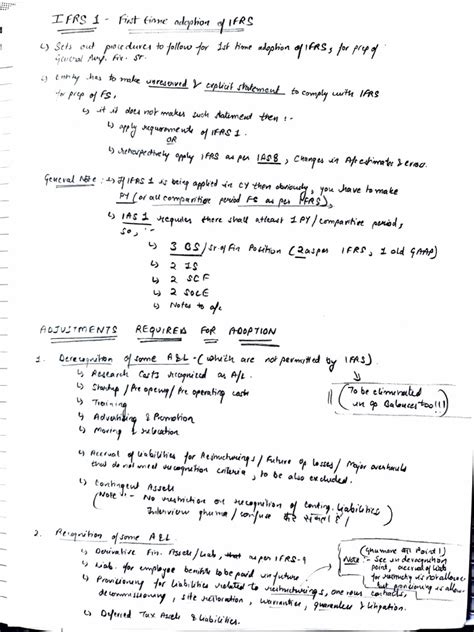 IFRS 1 - First time adoption of IFRS
↳ Sets out procedures to follow for 1st time adoption of IFRS, for prep of
General Purp. Fin. St.
↳ Entity has to make unreserved & explicit statement to comply with IFRS
for prep of FS,
↳ if it does not makes such statement then :-
↳ apply requirements of IFRS 1.
OR
↳ retrospectively apply IFRS as per IAS 8, Changes in A/c estimates & Error.
General Note : ↳ If IFRS 1 is being applied in CY then obviously, you have to make
PY (or all comparitive period FS as per IFRS),
↳ IAS 1 requires there shall atleast 1 PY / comparitive period,
so,
↳ 3 BS / St. of Fin Position (2 as per IFRS, 1 old GAAP)
↳ 2 IS
↳ 2 SCF
↳ 2 SOCE
↳ Notes to a/c
ADJUSTMENTS REQUIRED FOR ADOPTION
1. Derecognition of some A & L - (which are not permitted by IFRS)
↳ Research Costs recognised as A/L
↳ Startup / Pre opening / Pre operating costs
↳ Training
↳ Advertising & Promotion
↳ Moving & relocation
(To be eliminated
in op Balances too!!!)
↳ Accrual of liabilities for Restructurings / Future op losses / Major overhauls
that do not meet recognition criteria, to be also excluded.
↳ Contingent Assets
(Note :- No restriction on recognition of conting. liabilities
Interview ghuma / confuse
2. Recognition of some A & L
↳ Derivative Fin. Assets / Liab, as per IFRS-9
↳ Liab. for employee benefits to be paid in future
↳ Provisioning for liabilities related to restructurings, onerous contracts,
decommissioning, site restoration, warranties, guarantees & litigation.
↳ Deferred Tax Assets & Liabilities.
(Ghumane का Point !)
Note :- See in derecognition
point, accrual of liab
for restructg is not allowed
but provisioning is allow